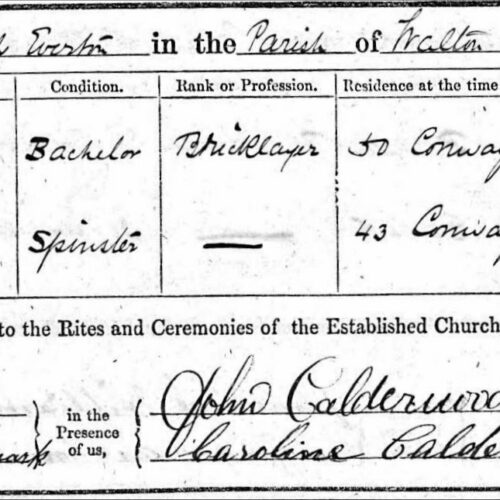 Everton in the Parish of Walton
Condition. Rank or Profession. Residence at the time
Bachelor Bricklayer 50 Conway
Spinster — 43 Conwa
to the Rites and Ceremonies of the Established Church
in the
Presence
of us,
John Calderwood
Caroline Calde
mark